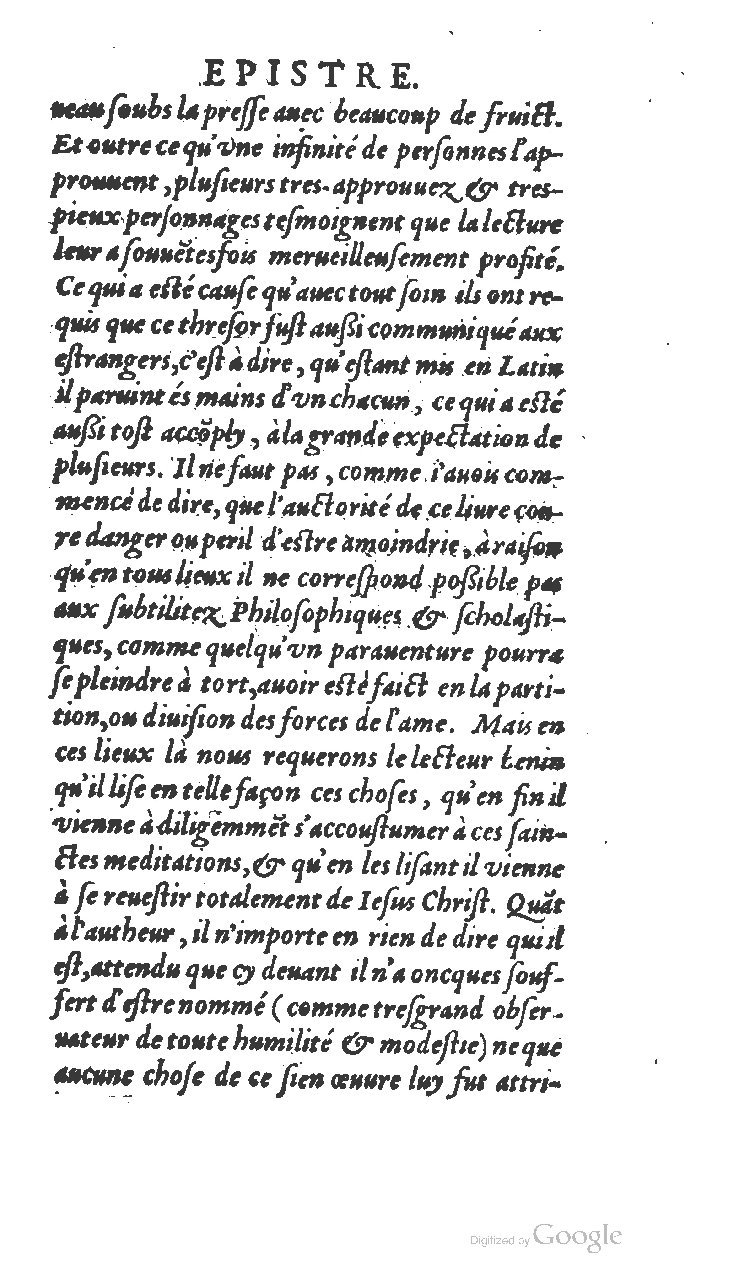 EPISTRE.
ueau ſoubs la preſſe auec beaucoup de fruict.
Et outre ce qu'vne infinité de perſonnes l'ap-
prouuent, pluſieurs tres-approuuez & tres-
pieux perſonnages teſmoignent que la lecture
leur a ſouuētesfois merueilleuſement profité.
Ce qui a eſté cauſe qu'auec tout ſoin ils ont re-
quis que ce threſor fuſt auſsi communiqué aux
eſtrangers, c'eſt à dire, qu'eſtant mis en Latin
il paruint és mains d'vn chacun, ce qui a eſté
auſsi toſt accōply, à la grande expectation de
pluſieurs. Il ne faut pas, comme i'auoi com-
mencé de dire, que l'auctorité de ce liure cou-
re danger ou peril d'eſtre amoindrie, à raiſon
qu'en tous lieux il ne correſpond poſsible pas
aux ſubtilitez Philoſophiques & ſcholaſti-
ques, comme quelqu'vn parauenture pourra
ſe pleindre à tort, auoir eſtè faict en la parti-
tion, ou diuiſion des forces de l'ame. Mais en
ces lieux là nous requerons le lecteur benin
qu'il liſe en telle façon ces choſes, qu'en fin il
vienne à diligēmmēt s'accouſtumer à ces ſain-
ctes meditations, & qu'en les liſant il vienne
à ſe reueſtir totalement de Ieſus Chriſt. Quāt
à l'autheur, il n'importe en rien de dire qui il
eſt, attendu que cy deuant il n'a oncques ſouf-
fert d'eſtre nommé (comme treſgrand obſer-
uateur de toute humilité & modeſtie) ne que
aucune choſe de ce ſien œuure luy fut attri-
Digitized by Google